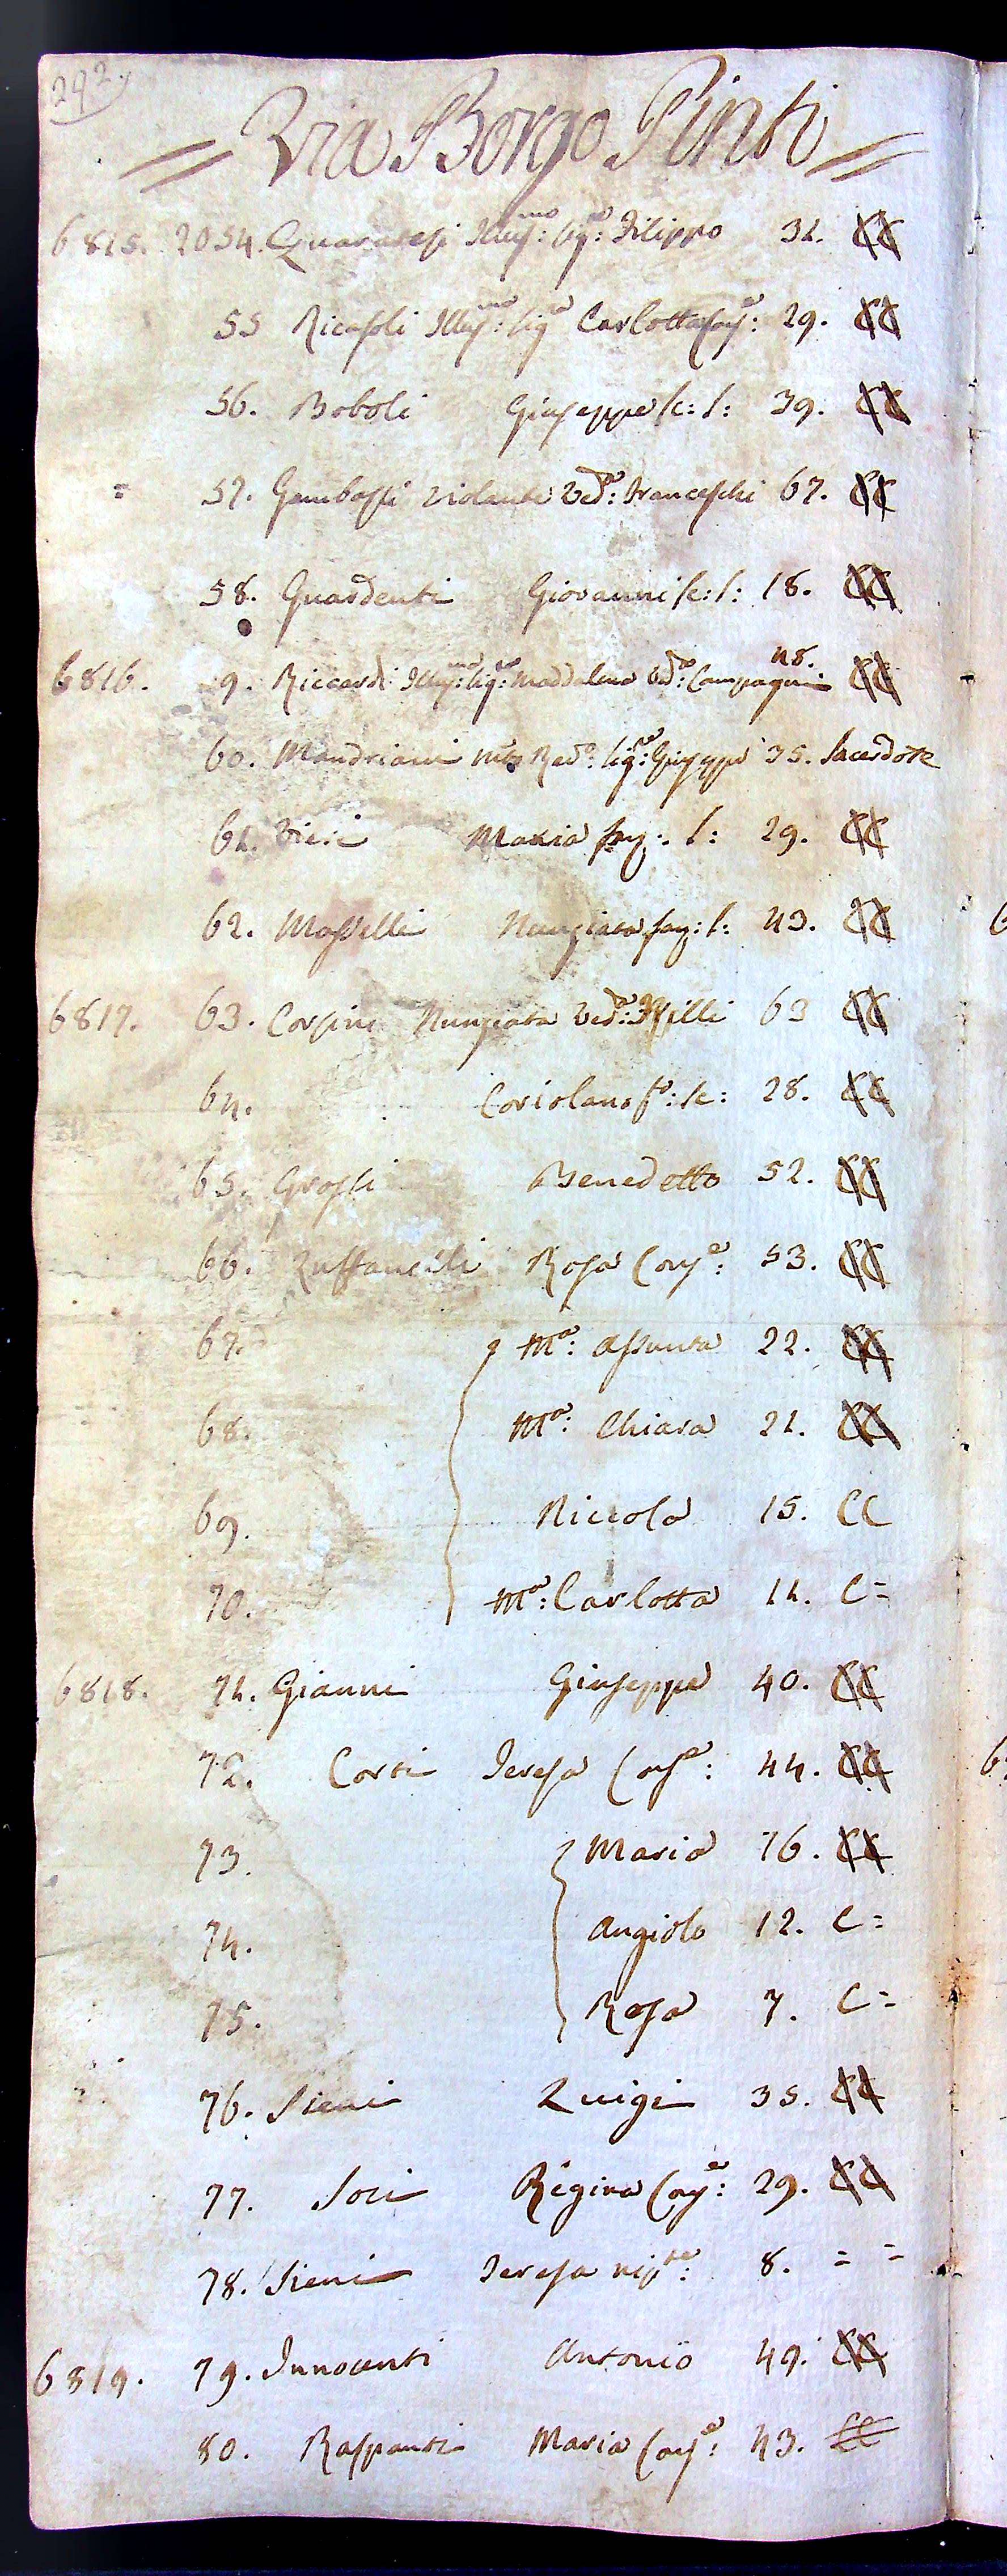 292.
= Via Borgo Pinti =
6815. 2054. Quaratesi Illus:mo Sig:re Filippo 31. CC
55 Ricasoli Illus:ma Sig:ra Carlotta Cons:e: 29. CC
56. Boboli Giuseppe se: s: 39. CC
= 57. Gambassi Violante Ved:a: Franceschi 67. CC
58. Guardenti Giovanni se: s: 18. CC
6816. 9. Riccardi Illus:ma Sig:ra Maddalena Ved:a: Compagni 48. CC
60. Mandriani Mto Revdo: Sig:re: Giuseppe 35. Sacerdote
61. Vieri Maria san: s: 29. CC
62. Masselli Nunziata san: s: 43. CC
6817. 63. Corsini Nunziata Ved:a: Milli 63 CC
64. Coriolano fo: se: 28. CC
65. Grossi Benedetto 52. CC
66. Zuffanelli Rosa Cons:e: 53. CC
67. Ma: Assunta 22. CC
68. Ma: Chiara 21. CC
69. Niccola 15. CC
70. Ma: Carlotta 11. C=
6818. 71. Gianni Giuseppe 40. CC
72. Corti Teresa Cons:e: 44. CC
73. Maria 16. CC
74. Angiolo 12. C=
75. Rosa 7. C=
76. Sieni Luigi 35. CC
77. Soci Regina Cons:e: 29. CC
78. Sieni Teresa nipte: 8. = =
6819. 79. Innocenti Antonio 49. CC
80. Raspanti Maria Cons:e: 43. CC